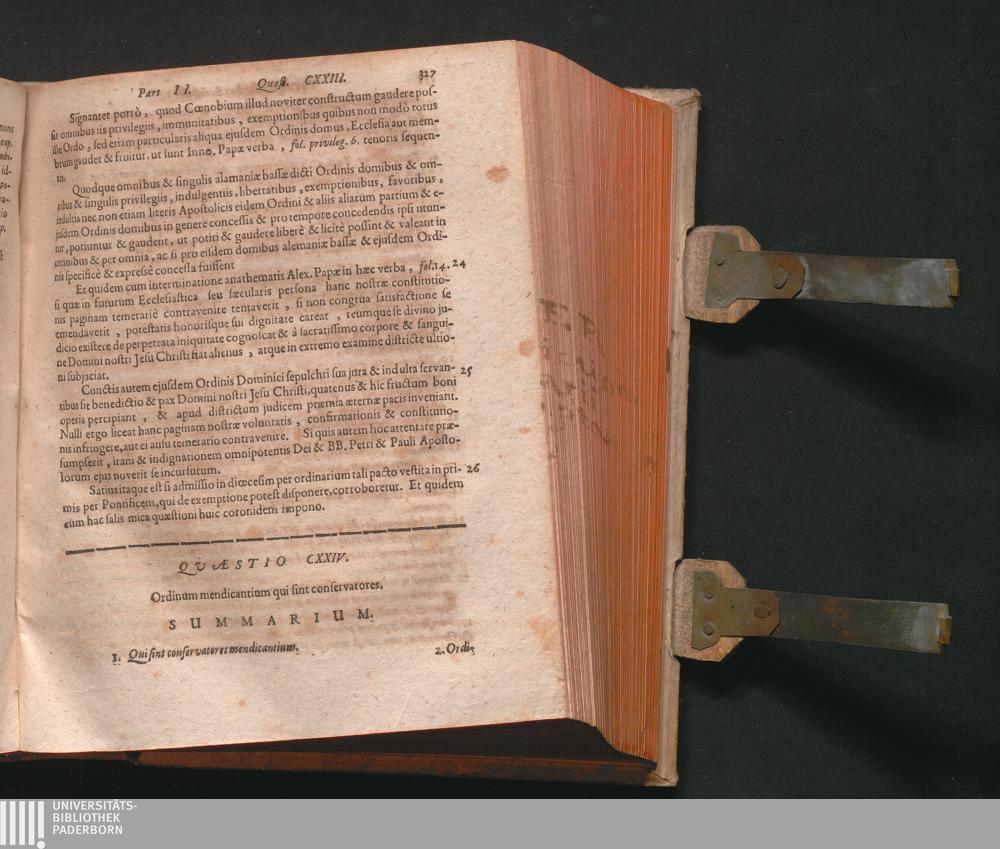 Pars II. Quæst. CXXIII. 327
Signanter porrò, quod Cœnobium illud noviter constructum gaudere pos-
sit omnibus iis privilegiis, immunitatibus, exemptionibus quibus non modò totus
ille Ordo, sed etiam particularis aliqua ejusdem Ordinis domus, Ecclesia aut mem-
brum gaudet & fruitur, ut sunt Inno. Papæ verba, fol. privileg. 6. tenoris sequen-
tis.
Quodque omnibus & singulis alamaniæ bassæ dicti Ordinis domibus & om-
nibus & singulis privilegiis, indulgentiis, libertatibus, exemptionibus, favoribus,
indultis nec non etiam literis Apostolicis eidem Ordini & aliis aliarum partium & e-
jusdem Ordinis domibus in genere concessis & pro tempore concedendis ipsi utun-
tur, potiuntur & gaudent, ut potiri & gaudere liberè & licitè possint & valeant in
omnibus & per omnia, ac si pro eisdem domibus alemaniæ bassæ & ejusdem Ordi-
nis specificè & expressè concessa fuissent
Et quidem cum interminatione anathematis Alex. Papæ in hæc verba, fol. 14. 24
si quæ in futurum Ecclesiastica seu sæcularis persona hanc nostræ constitutio-
nis paginam temerariè contravenire tentaverit, si non congrua satisfactione se
emendaverit, potestatis honorisque sui dignitate careat, reumque se divino ju-
dicio existere de perpetrata iniquitate cognoscat & à sacratissimo corpore & sangui-
ne Domini nostri Jesu Christi fiat alienus, atque in extremo examine districte ultio-
ni subjaciat.
Cunctis autem ejusdem Ordinis Dominici sepulchri sua jura & indulta servan- 25
tibus sit benedictio & pax Domini nostri Jesu Christi, quatenus & hic fructum boni
operis percipiant, & apud districtum judicem præmia æternæ pacis inveniant.
Nulli ergo liceat hanc paginam nostræ voluntatis, confirmationis & constitutio-
nis infringere, aut ei ausu temerario contravenire. Si quis autem hoc attentare præ-
sumpserit, iram & indignationem omnipotentis Dei & BB. Petri & Pauli Aposto-
lorum ejus noverit se incursurum.
Satius itaque est si admissio in diœcesim per ordinarium tali pacto vestita in pri- 26
mis per Pontificem, qui de exemptione potest disponere, corroboretur. Et quidem
cum hac salis mica quæstioni huic coronidem impono.
QUÆSTIO CXXIV.
Ordinum mendicantium qui sint conservatores.
SUMMARIUM.
1. Qui sint conservatores mendicantium.
2. Ordi-
UNIVERSITÄTS-
BIBLIOTHEK
PADERBORN